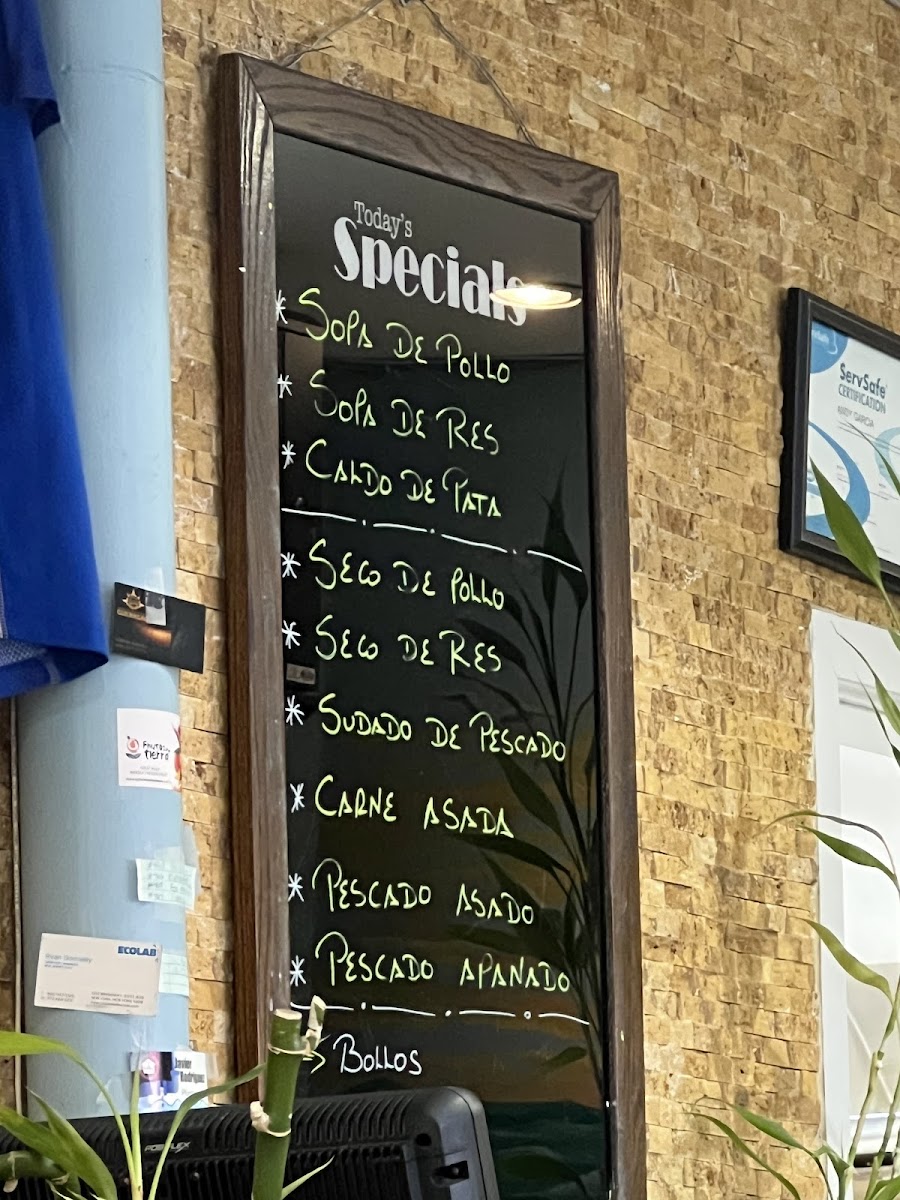 Today's
Specials
* SOPA DE POLLO
* SOPA DE RES
* CALDO DE PATA
* SECO DE POLLO
* SECO DE RES
* SUDADO DE PESCADO
* CARNE ASADA
* PESCADO ASADO
* PESCADO APANADO
→ BOLLOS
ServSafe
CERTIFICATION
ANDY GARCIA
tierra
ECOLAB
Javier
Rodriguez
POSIFLEX